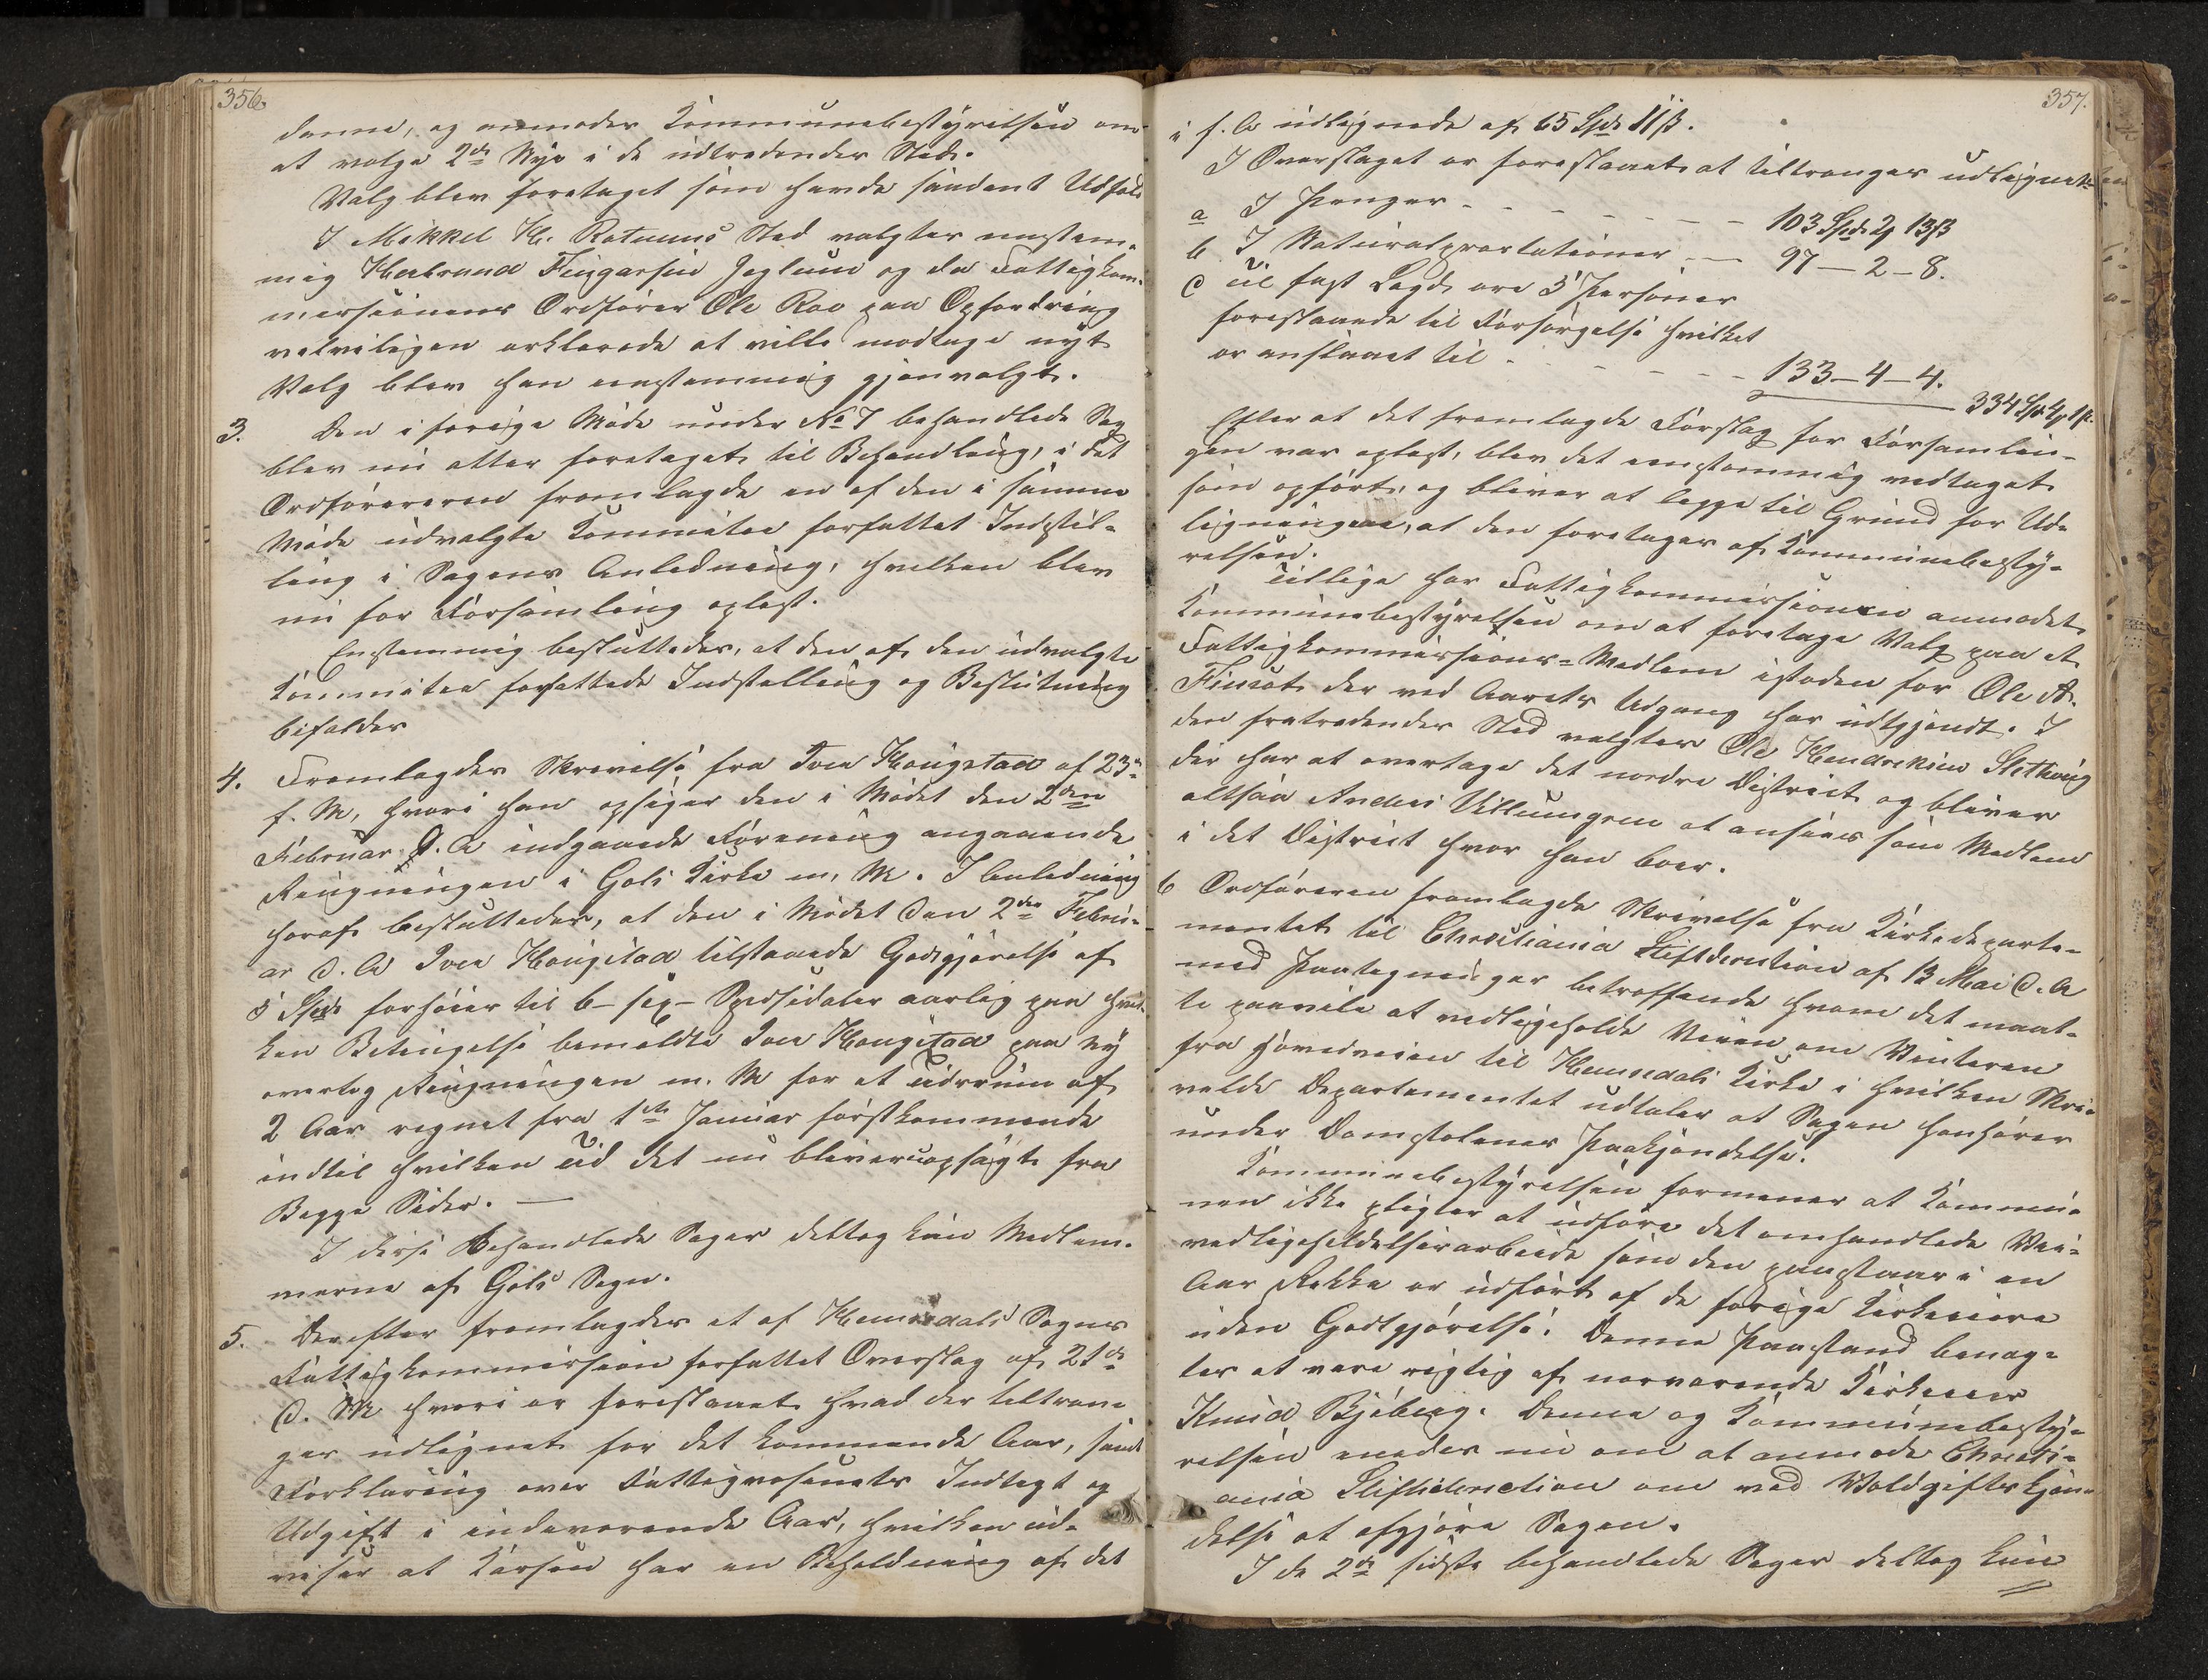 356.
denne, og anmodes Kommunebestyrelsen om
at vælge 2de Nye i de udtrædendes Sted.
Valg blev foretaget som havde saadant Udfald
I Mikkel H. Rotnems Sted valgtes eenstem-
mig Herbrand Fingarsen Jeglum og da Fattigkom-
missionens Ordfører Ole Roe paa Opfordring
velvilligen erklærede at ville modtage nyt
Valg blev han eenstemmig gjenvalgt.
3. Den i forrige Møde under No 7 behandlede Sag
blev nu atter foretaget til Behandling, i det
Ordføreren fremlagde en af den i samme
Møde udvalgte Kommitee forfattet Indstil-
ling i Sagens Anledning, hvilken blev
nu for Forsamling oplæst.
Enstemmig besluttedes, at den af den udvalgte
Kommitee forfattede Indstilling og Beslutning
bifaldes
4. Fremlagdes Skrivelse fra Iver Hougstad af 23de
f. M, hvori han opsiger den i Mødet den 2den
Februar d. A indgaaede Forening angaaende
Ringningen i Gols Kirke m. M. I Anledning
heraf besluttedes, at den i Mødet den 2den Febru-
ar d. A Iver Hougstad tilstaaede Godtgjørelse af
5 Spd forhøies til 6 – sex – Speciedaler aarlig paa hvil-
ken Betingelse bemeldte Iver Hougstad paa ny
overtog Ringningen m. M for et Tidsrum af
2 Aar regnet fra 1ste Januar førstkommende
indtil hvilken Tid det nu bliver opsagt fra
Begge Sider. —
I disse Behandlede Sager deltog kun Medlem-
merne af Gols Sogn.
5. Derefter fremlagdes et af Hemsedals Sogns
Fattigkommission forfattet Overslag af 21de
d. M hvori er foreslaaet hvad der tiltræn-
ges udlignet for det kommende Aar, samt
Forklaring over Fattigvæsenets Indtægt og
Udgift i indeværende Aar, hvilken ud-
viser at Kassen har en Beholdning af det
357.
i f. A udlignede af 65 Spd 11 ß.
I Overslaget er foreslaaet at tiltrænges udlignet
a I Penger - - - - - - - 103 Spd 2 13 ß
b I Naturalpræstationer — 97 — 2 — 8.
c Til fast Lægd ere 5 Personer
foreslaaede til Forsørgelse hvilket
er anslaaet til - - - - - - 133 — 4 — 4.
334 Spd 4 1 ß.
Efter at det fremlagde Forslag for Forsamlin-
gen var oplæst, blev det eenstemmig vedtaget
som opført, og bliver at lægge til Grund for Ud-
ligningen, at den foretages af Kommunebesty-
relsen.
Tillige har Fattigkommissionen anmodet
Kommunebestyrelsen om at foretage Valg paa et
Fattigkommissions-Medlem istæden for Ole A.
der ved Aarets Udgang har udtjendt. I
den fratrædendes Sted valgtes Ole Hendrikson
der har at overtage det nordre District og bliver
altsaa Anders at ansees som Medlem
i det District hvor han boer.
6 Ordføreren fremlagde Skrivelse fra Kirkedeparte-
mentet til Christiania Stiftdirection af 13 Mai d. A
med Paategninger betræffende hvem det maat-
te paavile at vedligeholde Veien om Vinteren
fra Hovedveien til Hemsedals Kirke i hvilken Skri-
velse Departementet udtaler at Sagen henhører
under Domstolenes Paakjendelse.
Kommunebestyrelsen formener at Kommu-
nen ikke pligter at udføre det omhandlede Vei-
vedligeholdelsesarbeide som den paastaar i en
Aar Række er udført af de forrige Kirkeeiere
uden Godtgjørelse. Denne Paastand benæg-
tes at være rigtig af nærværende Kirkeeier
Knud Bjøberg. Denne og Kommunebesty-
relsen enedes nu om at anmode Christi-
ania Stiftsdirection om ved Voldgiftskjen-
delse at afgjøre Sagen.
I de 2de sidste behandlede Sager deltog kun